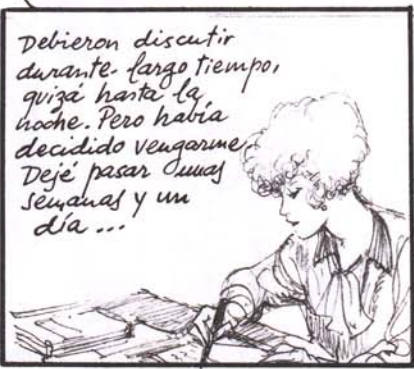 Debieron discutir
durante largo tiempo,
quizá hasta la
noche. Pero había
decidido vengarme.
Dejé pasar unas
semanas y un
día ...